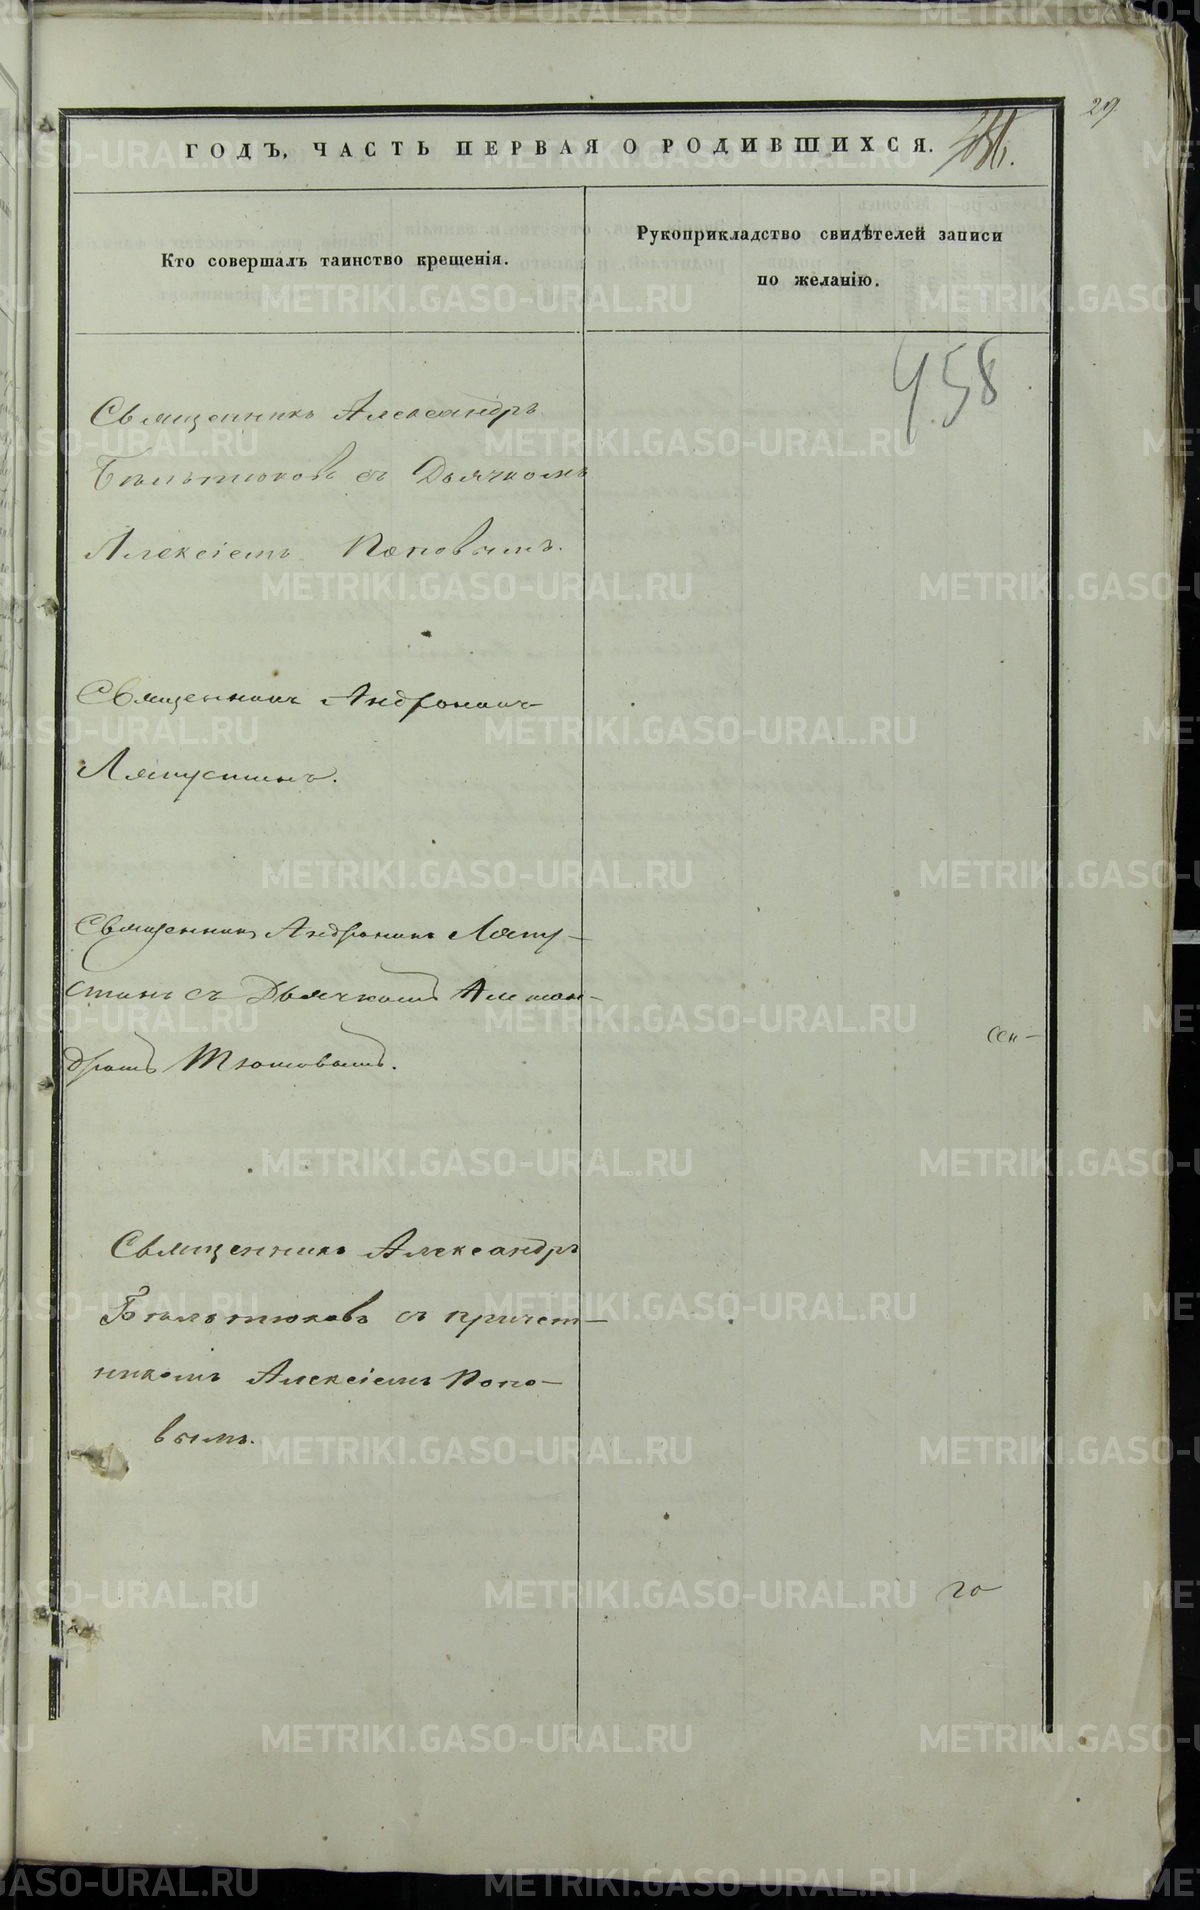 29
ГОДЪ, ЧАСТЬ ПЕРВАЯ О РОДИВШИХСЯ.
Кто совершалъ таинство крещенія.
Рукоприкладство свидѣтелей записи
по желанію.
958
Священникъ Александръ
Бѣльтюковъ съ Дьячкомъ
Алексіемъ Поповымъ.
Священникъ Андроникъ
Ляпустинъ.
Священникъ Андроникъ Ляпу-
стинъ съ Дьячкомъ Алексан-
дромъ Тюшовымъ.
сен-
Священникъ Александръ
Бѣльтюковъ съ причет-
никомъ Алексіемъ Попо-
вымъ.
го
METRIKI.GASO-URAL.RU